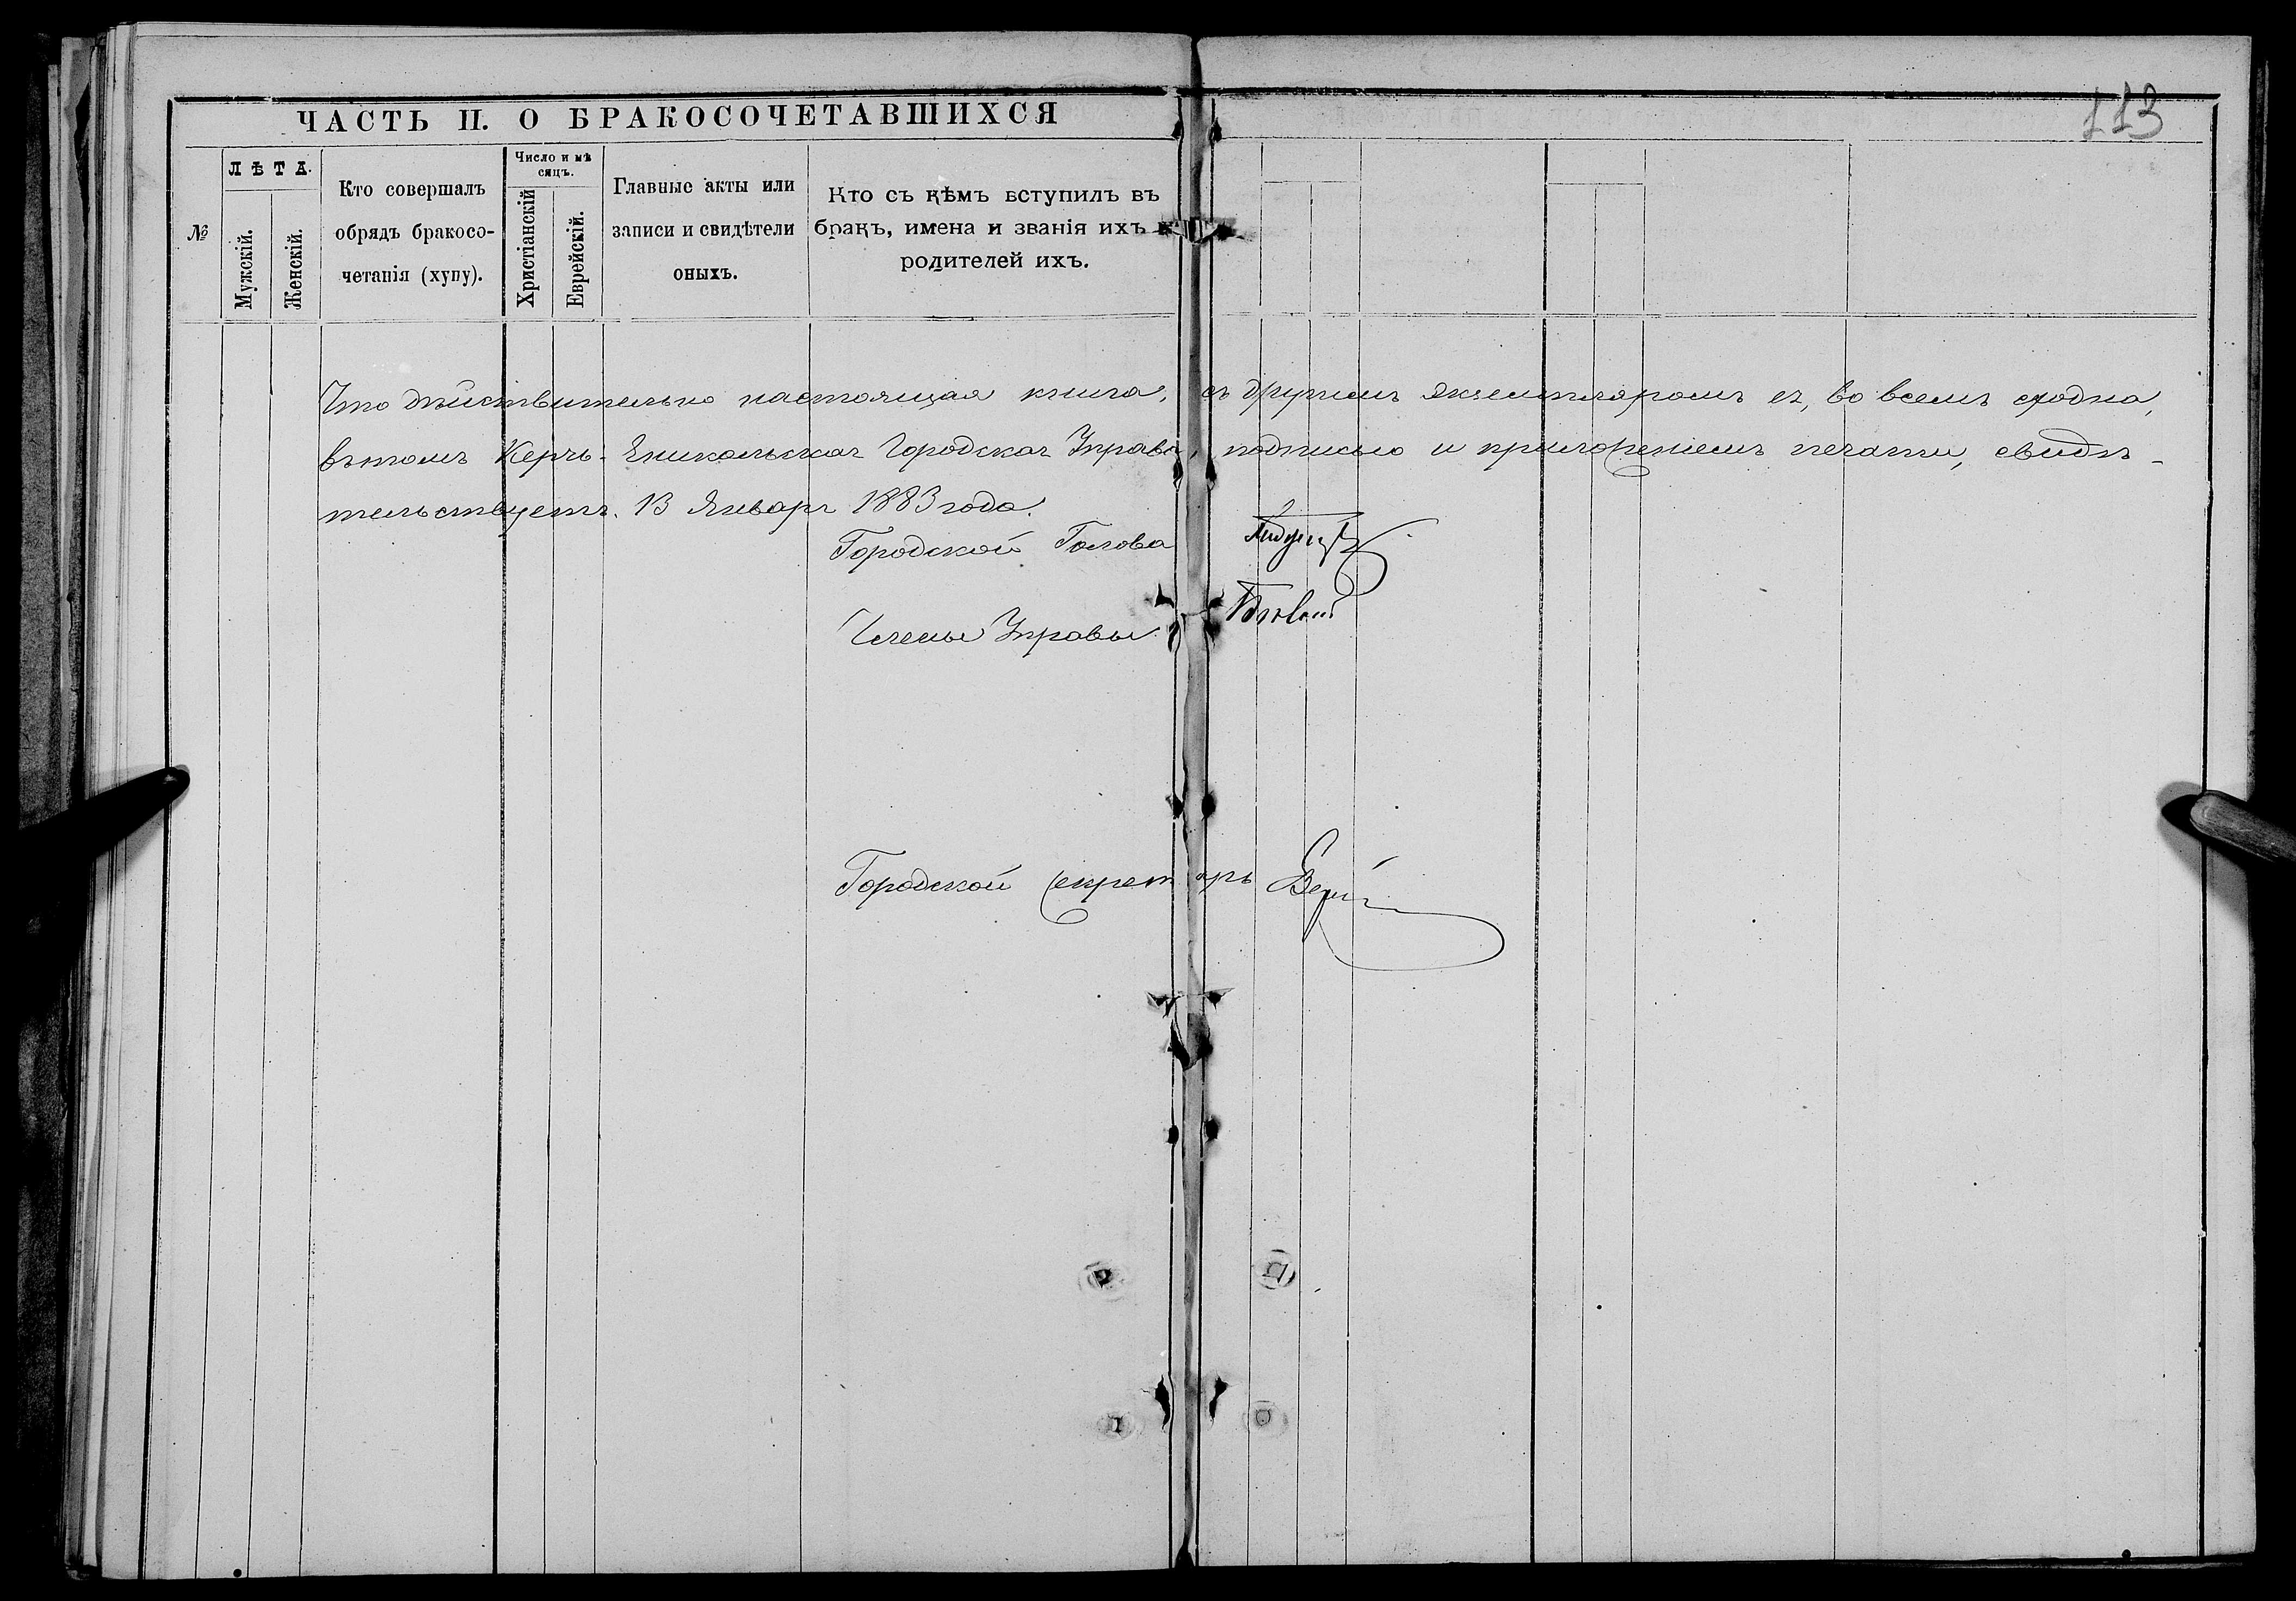 113
ЧАСТЬ II. О БРАКОСОЧЕТАВШИХСЯ
№
ЛѢТА.
Мужскій.
Женскій.
Кто совершалъ
обрядъ бракосо-
четанія (хупу).
Число и мѣ
сяцъ.
Христіанскій
Еврейскій.
Главные акты или
записи и свидѣтели
оныхъ.
Кто съ кѣмъ вступилъ въ
бракъ, имена и званія ихъ и
родителей ихъ.
Что дѣйствительно настоящая книга, съ другимъ экземпляромъ ея, во всемъ сходна,
въ томъ Керчь-Еникальская Городская Управа, подписью и приложеніемъ печати, свидѣ-
тельствуетъ. 13 Января 1883 года.
Городской Голова
Члены Управы
Городской Секретарь